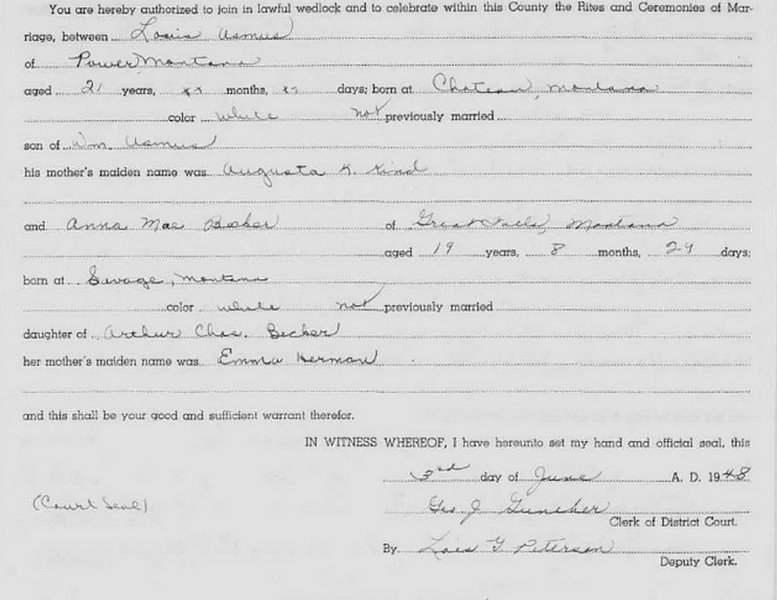 You are hereby authorized to join in lawful wedlock and to celebrate within this County the Rites and Ceremonies of Mar-
riage, between Louis Asmus
of Power Montana
aged 21 years, months, days; born at Choteau, Montana
color white not previously married
son of Wm. Asmus
his mother's maiden name was Augusta K. Kind
and Anna Mae Becker of Great Falls, Montana
aged 19 years, 8 months, 29 days;
born at Savage, Montana
color white not previously married
daughter of Arthur Chas. Becker
her mother's maiden name was Emma Herman
and this shall be your good and sufficient warrant therefor.
IN WITNESS WHEREOF, I have hereunto set my hand and official seal, this
3rd day of June A. D. 1948.
(Court Seal) Geo J.
Clerk of District Court.
By Lois Y Peterson
Deputy Clerk.